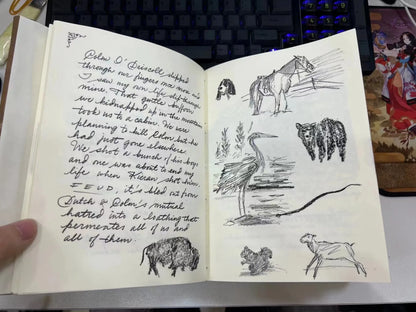 Colm O'Driscoll slipped
through our fingers once more as
I saw my own life slip through
mine. That gentle buffoon
we kidnapped up in the mountains
took us to a cabin. We was
planning to kill Colm but he
had just gone elsewhere
We shot a bunch of his boys
and one was about to end my
life when Kieran shot him.
FEUD, it's bled out from
Dutch & Colm's mutual
hatred into a loathing that
permeates all of us and
all of them.